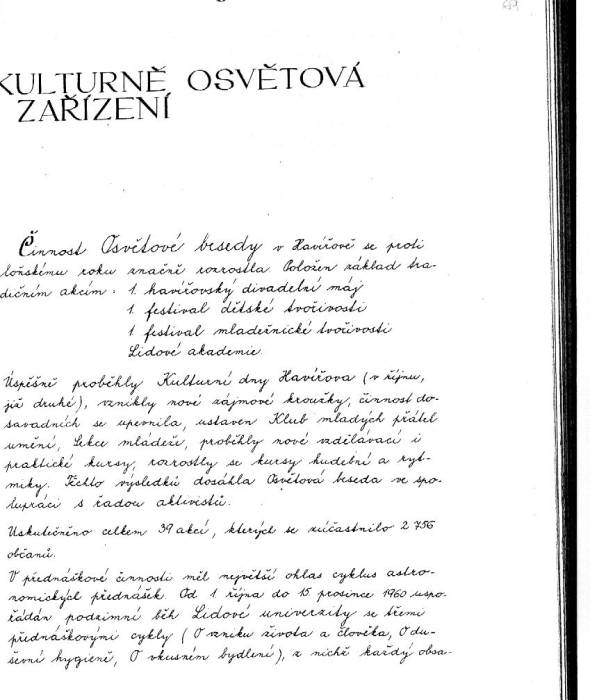 KULTURNĚ OSVĚTOVÁ
ZAŘÍZENÍ
Činnost Osvětové besedy v Havířově se proti
loňskému roku značně rozrostla. Položen základ tra-
dičním akcím: 1. havířovský divadelní máj
1 festival dětské tvořivosti
1 festival mládežnické tvořivosti
Lidové akademie.
Úspěšně proběhly Kulturní dny Havířova (v říjnu,
již druhé), vznikly nové zájmové kroužky, činnost do-
savadních se upevnila, ustaven Klub mladých přátel
umění, Sekce mládeže, proběhly nové vzdělávací i
praktické kursy, rozrostly se kursy hudební a ryt-
miky. Těchto výsledků dosáhla Osvětová beseda ve spo-
lupráci s řadou aktivistů.
Uskutečněno celkem 39 akcí, kterých se zúčastnilo 2 756
občanů.
V přednáškové činnosti měl největší ohlas cyklus astro-
nomických přednášek. Od 1 října do 15 prosince 1960 uspo-
řádán podzimní běh Lidové univerzity se třemi
přednáškovými cykly (O vzniku života a člověka, O du-
ševní hygieně, O vkusném bydlení), z nichž každý obsa-